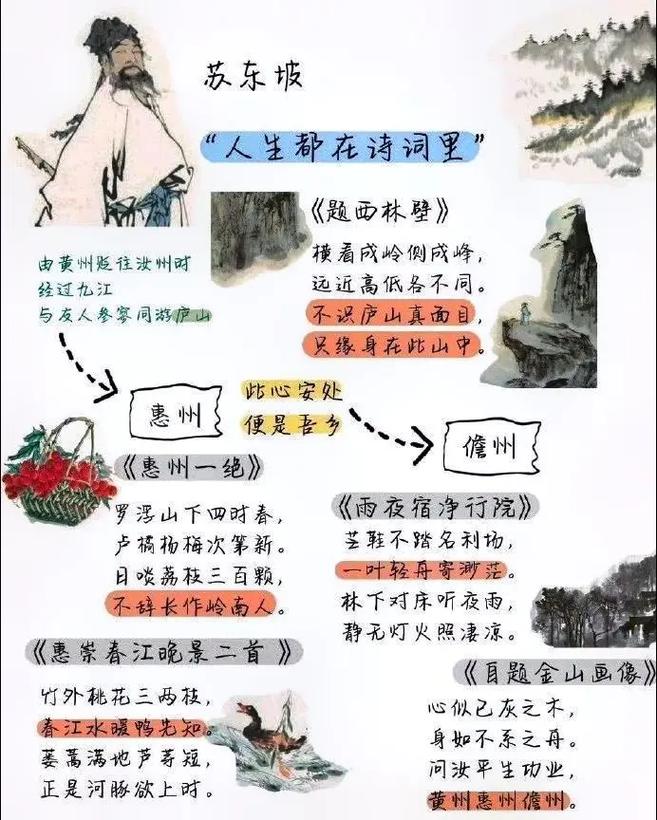 苏东坡
“人生都在诗词里”
《题西林壁》
横看成岭侧成峰，
远近高低各不同。
不识庐山真面目，
只缘身在此山中。
由黄州贬往汝州时
经过九江
与友人参寥同游庐山
惠州
此心安处
便是吾乡
儋州
《惠州一绝》
罗浮山下四时春，
卢橘杨梅次第新。
日啖荔枝三百颗，
不辞长作岭南人。
《雨夜宿净行院》
芒鞋不踏名利场，
一叶轻舟寄渺茫。
林下对床听夜雨，
静无灯火照凄凉。
《惠崇春江晚景二首 》
竹外桃花三两枝，
春江水暖鸭先知。
蒌蒿满地芦芽短，
正是河豚欲上时。
《自题金山画像》
心似已灰之木，
身如不系之舟。
问汝平生功业，
黄州惠州儋州。